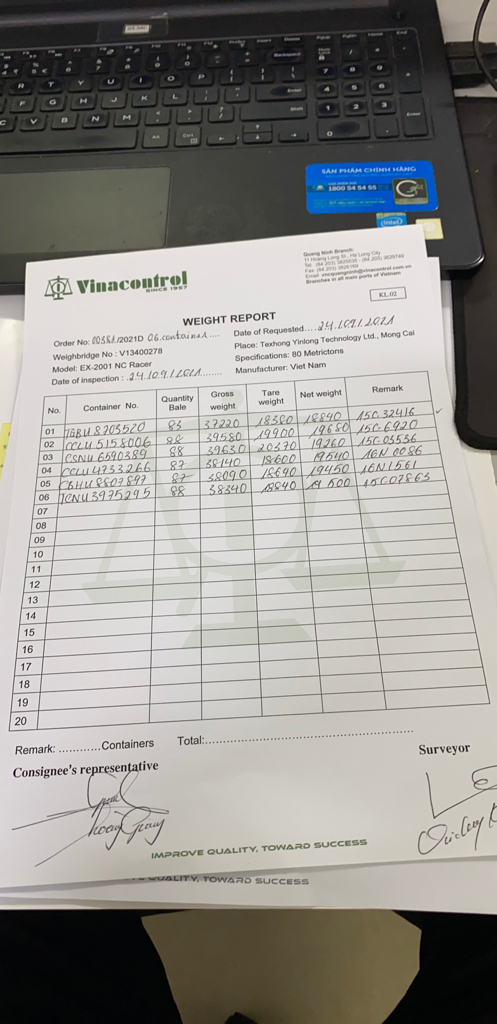 SẢN PHẨM CHÍNH HÃNG
1800 54 54 55
intel
Vinacontrol
SINCE 1957
Quang Ninh Branch:
11 Hoang Long St., Ha Long City
Email: vncquangninh@vinacontrol.com.vn
Branches in all main ports of Vietnam
KL.02
WEIGHT REPORT
Order No: /2021D 06 container
Date of Requested....24/09/2021
Weighbridge No : V13400278
Place: Texhong Yinlong Technology Ltd., Mong Cai
Model: EX-2001 NC Racer
Specifications: 80 Metrictons
Date of inspection : 24/09/2021
Manufacturer: Viet Nam
No. Container No. Quantity Bale Gross weight Tare weight Net weight Remark
01 TGBU 8703520 83 37220 18380 18840 15C.32416
02 CCLU 5158006 88 39580 19900 19680 15C-6920
03 CSNU 6590389 88 39630 20370 19260 15C-05536
04 CCLU 4733266 87 38140 18600 19540 16N 0086
05 CBHU 8807897 87 38090 18640 19450 16N1561
06 TCNU 3975295 88 38340 18840 19500 15C07863
07
08
09
10
11
12
13
14
15
16
17
18
19
20
Remark: ............Containers Total:
Consignee's representative
Surveyor
IMPROVE QUALITY, TOWARD SUCCESS
QUALITY, TOWARD SUCCESS